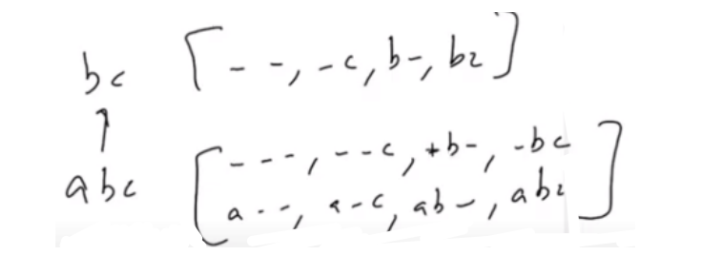 bc [ - -, -c, b-, bc ]
↑
abc [ - - -, - - c, +b-, -bc
a - -, a-c, ab-, abc ]